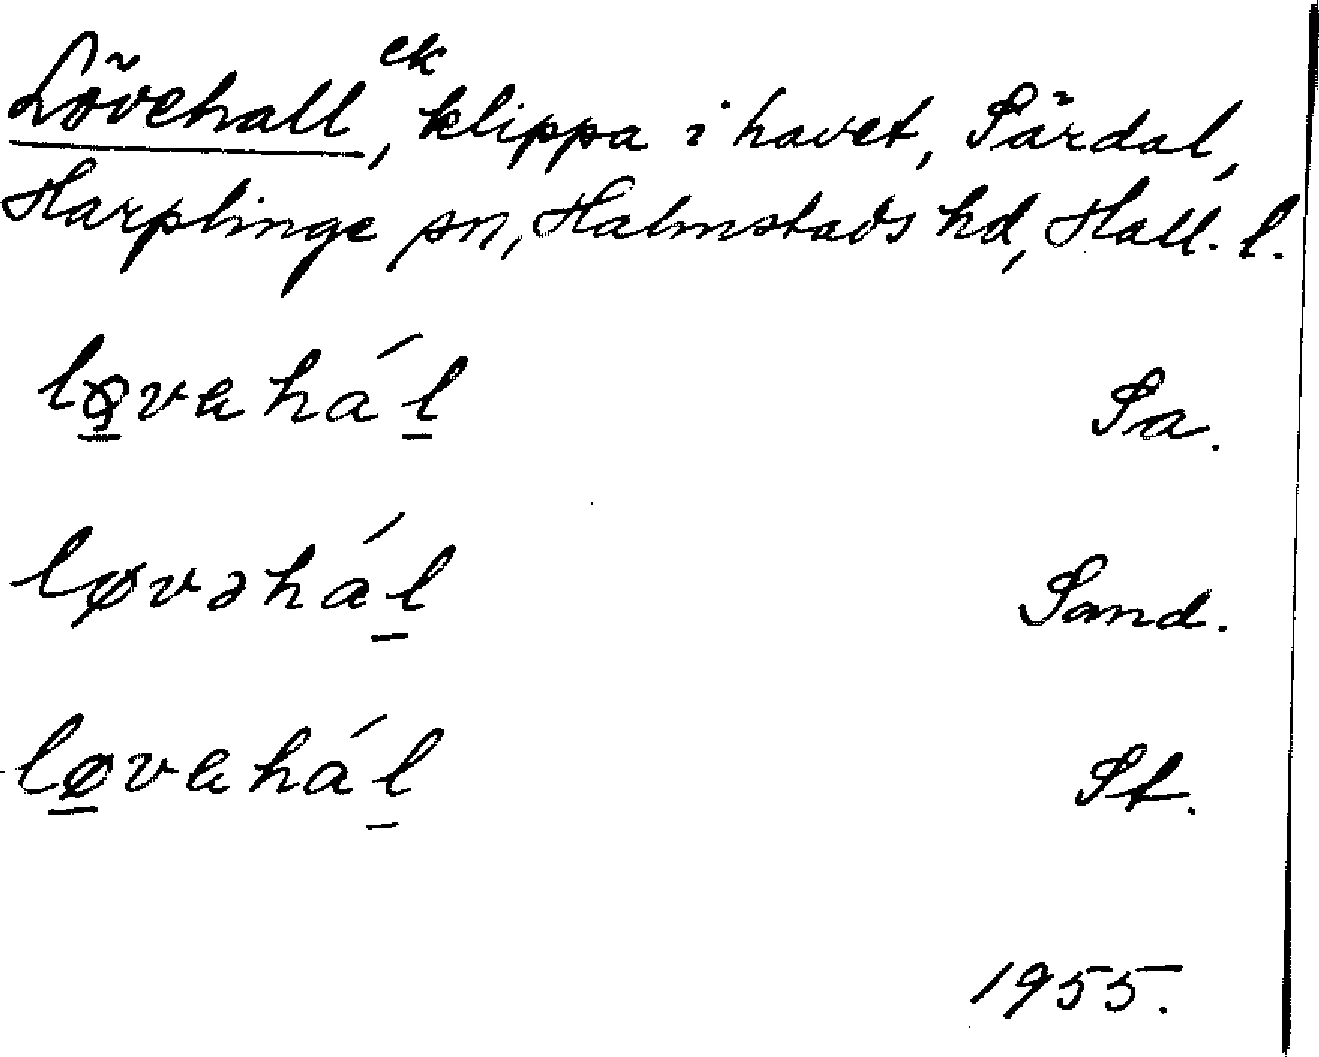 Lövehall, ek klippa i havet, Särdal,
Harplinge sn, Halmstads hd, Hall. l.
lø̱vahál̲ Sa.
løvəhál̲ Sand.
lø̱vahál̲ St.
1955.